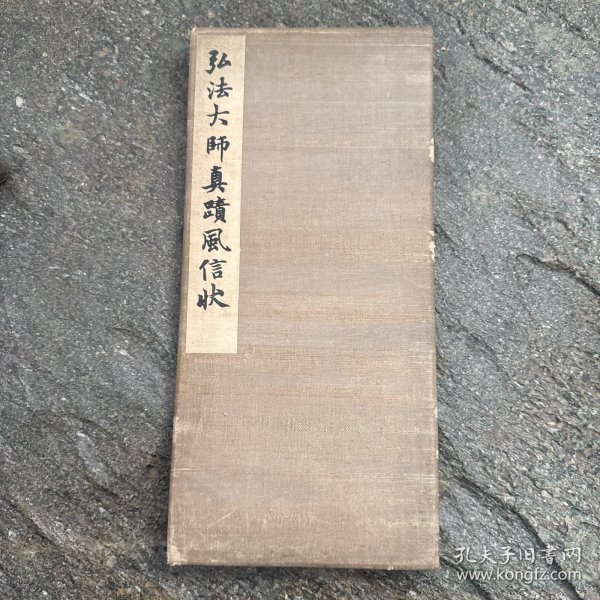 弘法大師真蹟風信状
孔夫子旧書网
www.kongfz.com